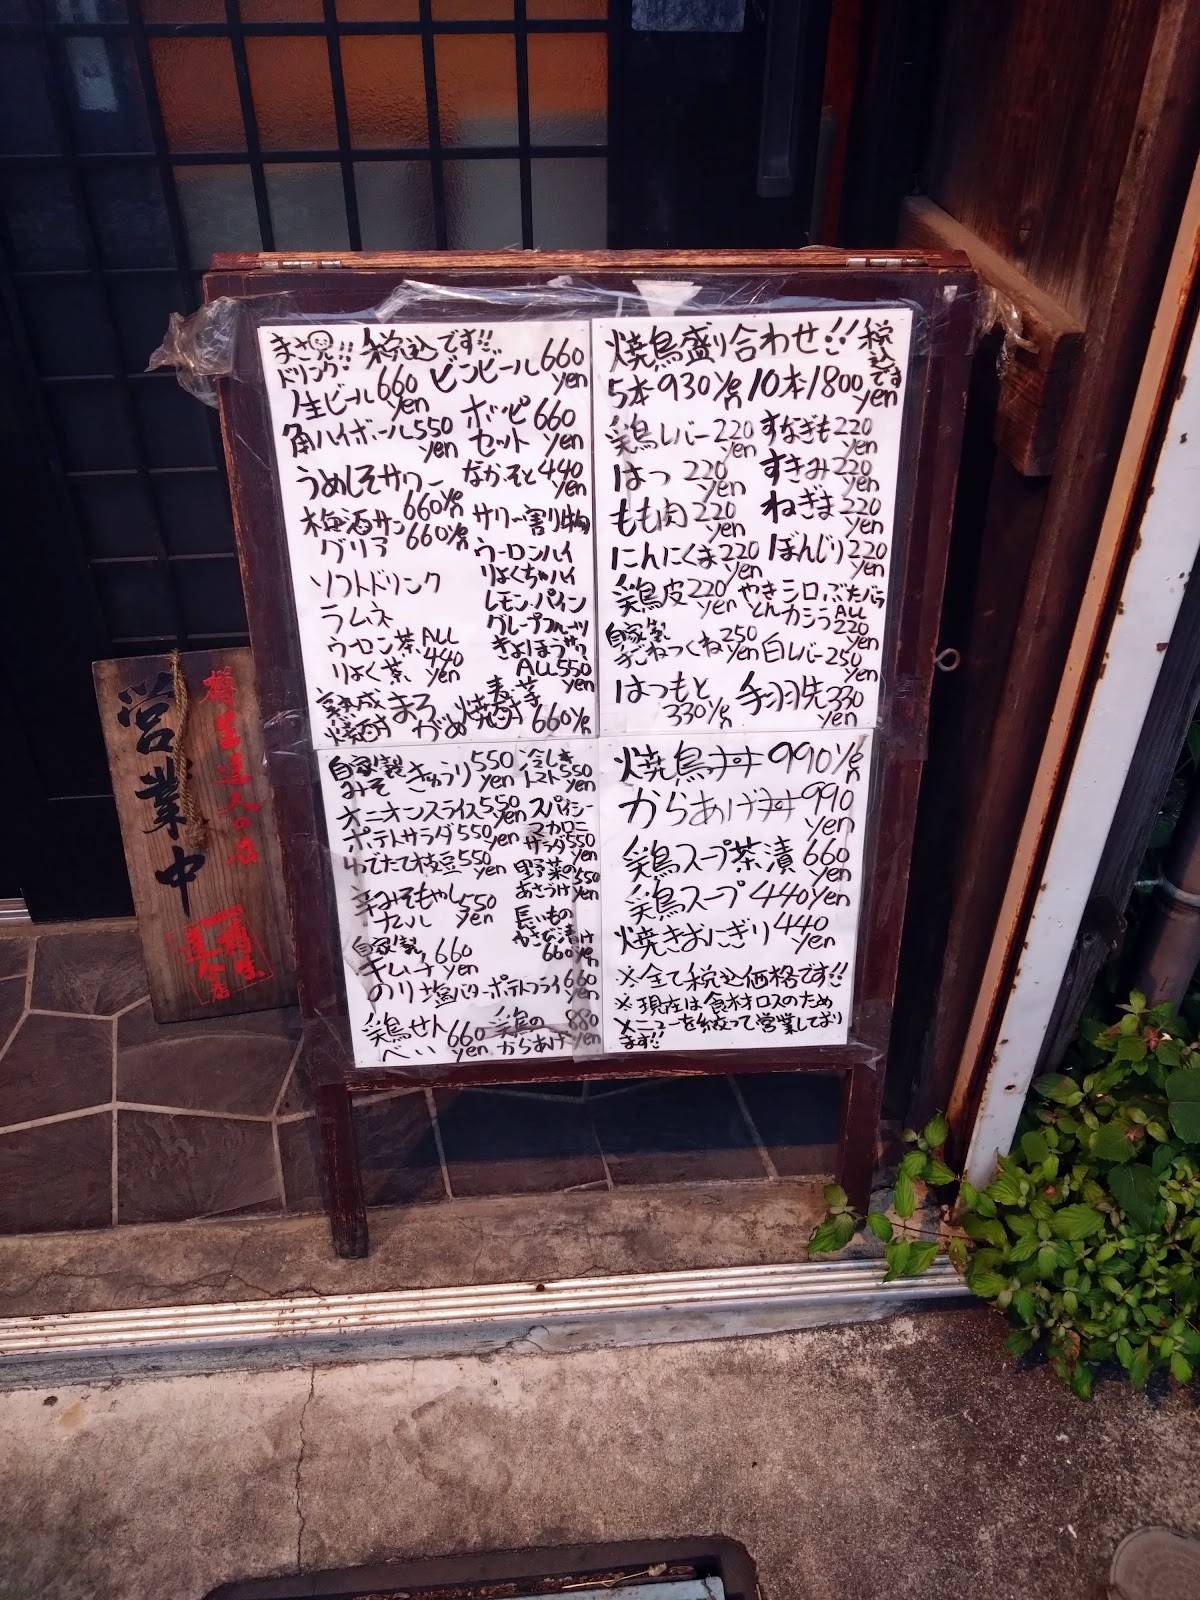 まさ兄!! 税込です!!
ドリンク!
生ビール660yen
ビンビール660yen
角ハイボール550yen
ホッピーセット660yen
うめしそサワー660yen
なか・そと440yen
梅酒サングリア660yen
サワー割り物
ウーロンハイ
りょくちゃハイ
レモン・パイン
グレープフルーツ
きょほうサワー
ALL550yen
ソフトドリンク
ラムネ
ウーロン茶
りょく茶
ALL440yen
熟成焼酎 まろ がめ
焼酎660yen
焼鳥盛り合わせ!! 税込です
5本930yen 10本1800yen
鶏レバー220yen すなぎも220yen
はつ220yen すきみ220yen
もも肉220yen ねぎま220yen
にんにくま220yen ぼんじり220yen
鶏皮220yen
やきとん シロ カシラ ぶたバラ ALL220yen
自家製手ごねつくね250yen 白レバー250yen
はつもと330yen 手羽先330yen
自家製みそきゅうり550yen 冷しトマト550yen
オニオンスライス550yen
スパイシーマカロニサラダ550yen
ポテトサラダ550yen
ゆでたて枝豆550yen
野菜のあさづけ550yen
辛みそもやしナムル550yen
長いものわさび漬け660yen
自家製キムチ660yen
のり塩バターポテトフライ660yen
鶏せんべい660yen 鶏のからあげ880yen
焼鳥丼990yen
からあげ丼990yen
鶏スープ茶漬660yen
鶏スープ440yen
焼きおにぎり440yen
※全て税込価格です!!
※現在は食材ロスのため
メニューを絞って営業しており
ます!!
営業中
樽生達人の店
樽生達人店